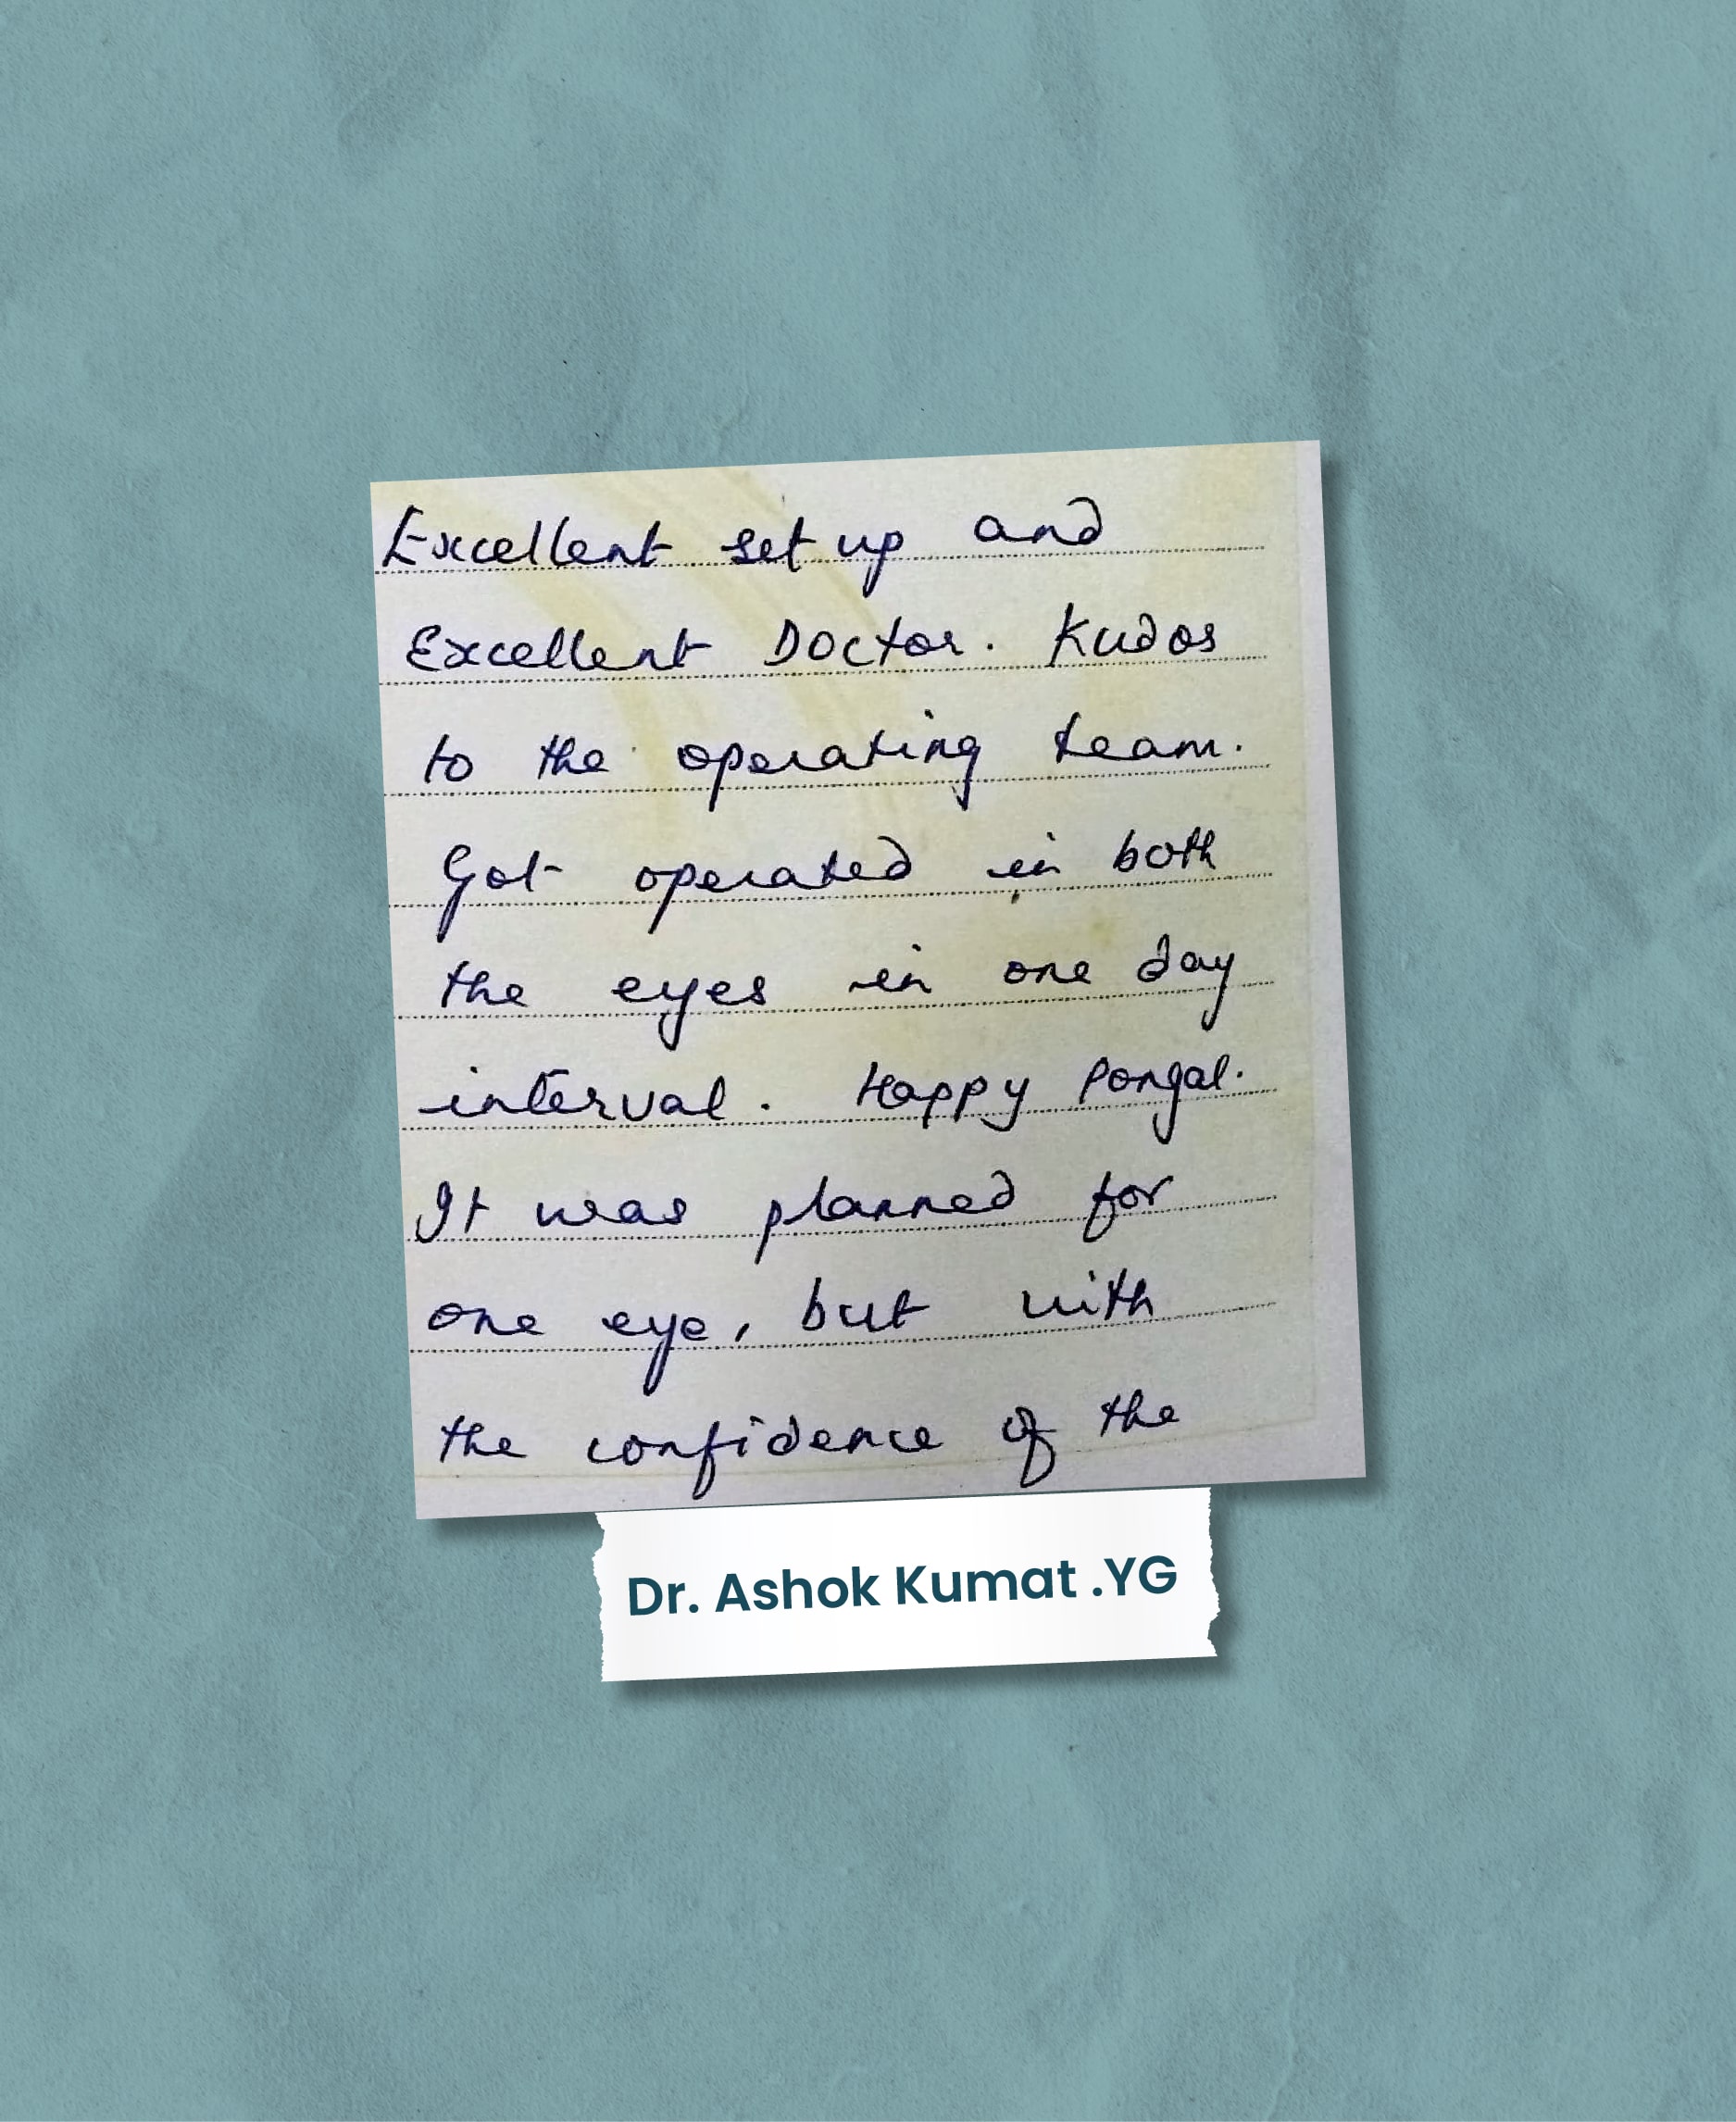 Excellent set up and
Excellent Doctor. Kudos
to the operating team.
Got operated in both
the eyes in one day
interval. Happy Pongal.
It was planned for
one eye, but with
the confidence of the
Dr. Ashok Kumat .YG